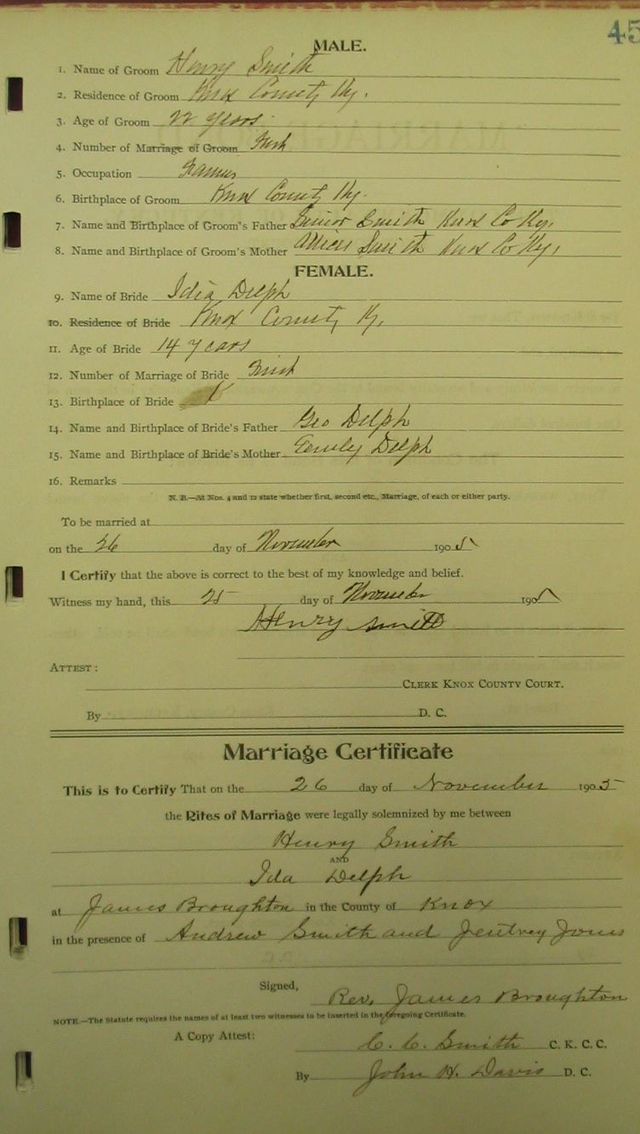 45
MALE.
1. Name of Groom Henry Smith
2. Residence of Groom Knox County Ky.
3. Age of Groom 22 years
4. Number of Marriage of Groom First
5. Occupation Farmer
6. Birthplace of Groom Knox County Ky.
7. Name and Birthplace of Groom's Father Smith Knox Co Ky.
8. Name and Birthplace of Groom's Mother Smith Knox Co Ky.
FEMALE.
9. Name of Bride Idia Delph
10. Residence of Bride Knox County Ky.
11. Age of Bride 14 years
12. Number of Marriage of Bride First
13. Birthplace of Bride
14. Name and Birthplace of Bride's Father Geo Delph
15. Name and Birthplace of Bride's Mother Emily Delph
16. Remarks
N. B.—At Nos. 4 and 12 state whether first, second etc., Marriage, of each or either party.
To be married at
on the 26 day of November 1905
I Certify that the above is correct to the best of my knowledge and belief.
Witness my hand, this 25 day of November 1905
Henry Smith
ATTEST:
CLERK KNOX COUNTY COURT.
By D. C.
Marriage Certificate
This is to Certify That on the 26 day of November 1905
the Rites of Marriage were legally solemnized by me between
Henry Smith
AND
Ida Delph
at James Broughton in the County of Knox
in the presence of Andrew Smith and Jones
Signed,
Rev. James Broughton
NOTE.—The Statute requires the names of at least two witnesses to be inserted in the foregoing Certificate.
A Copy Attest: C. C. Smith C. K. C. C.
By John H. Davis D. C.